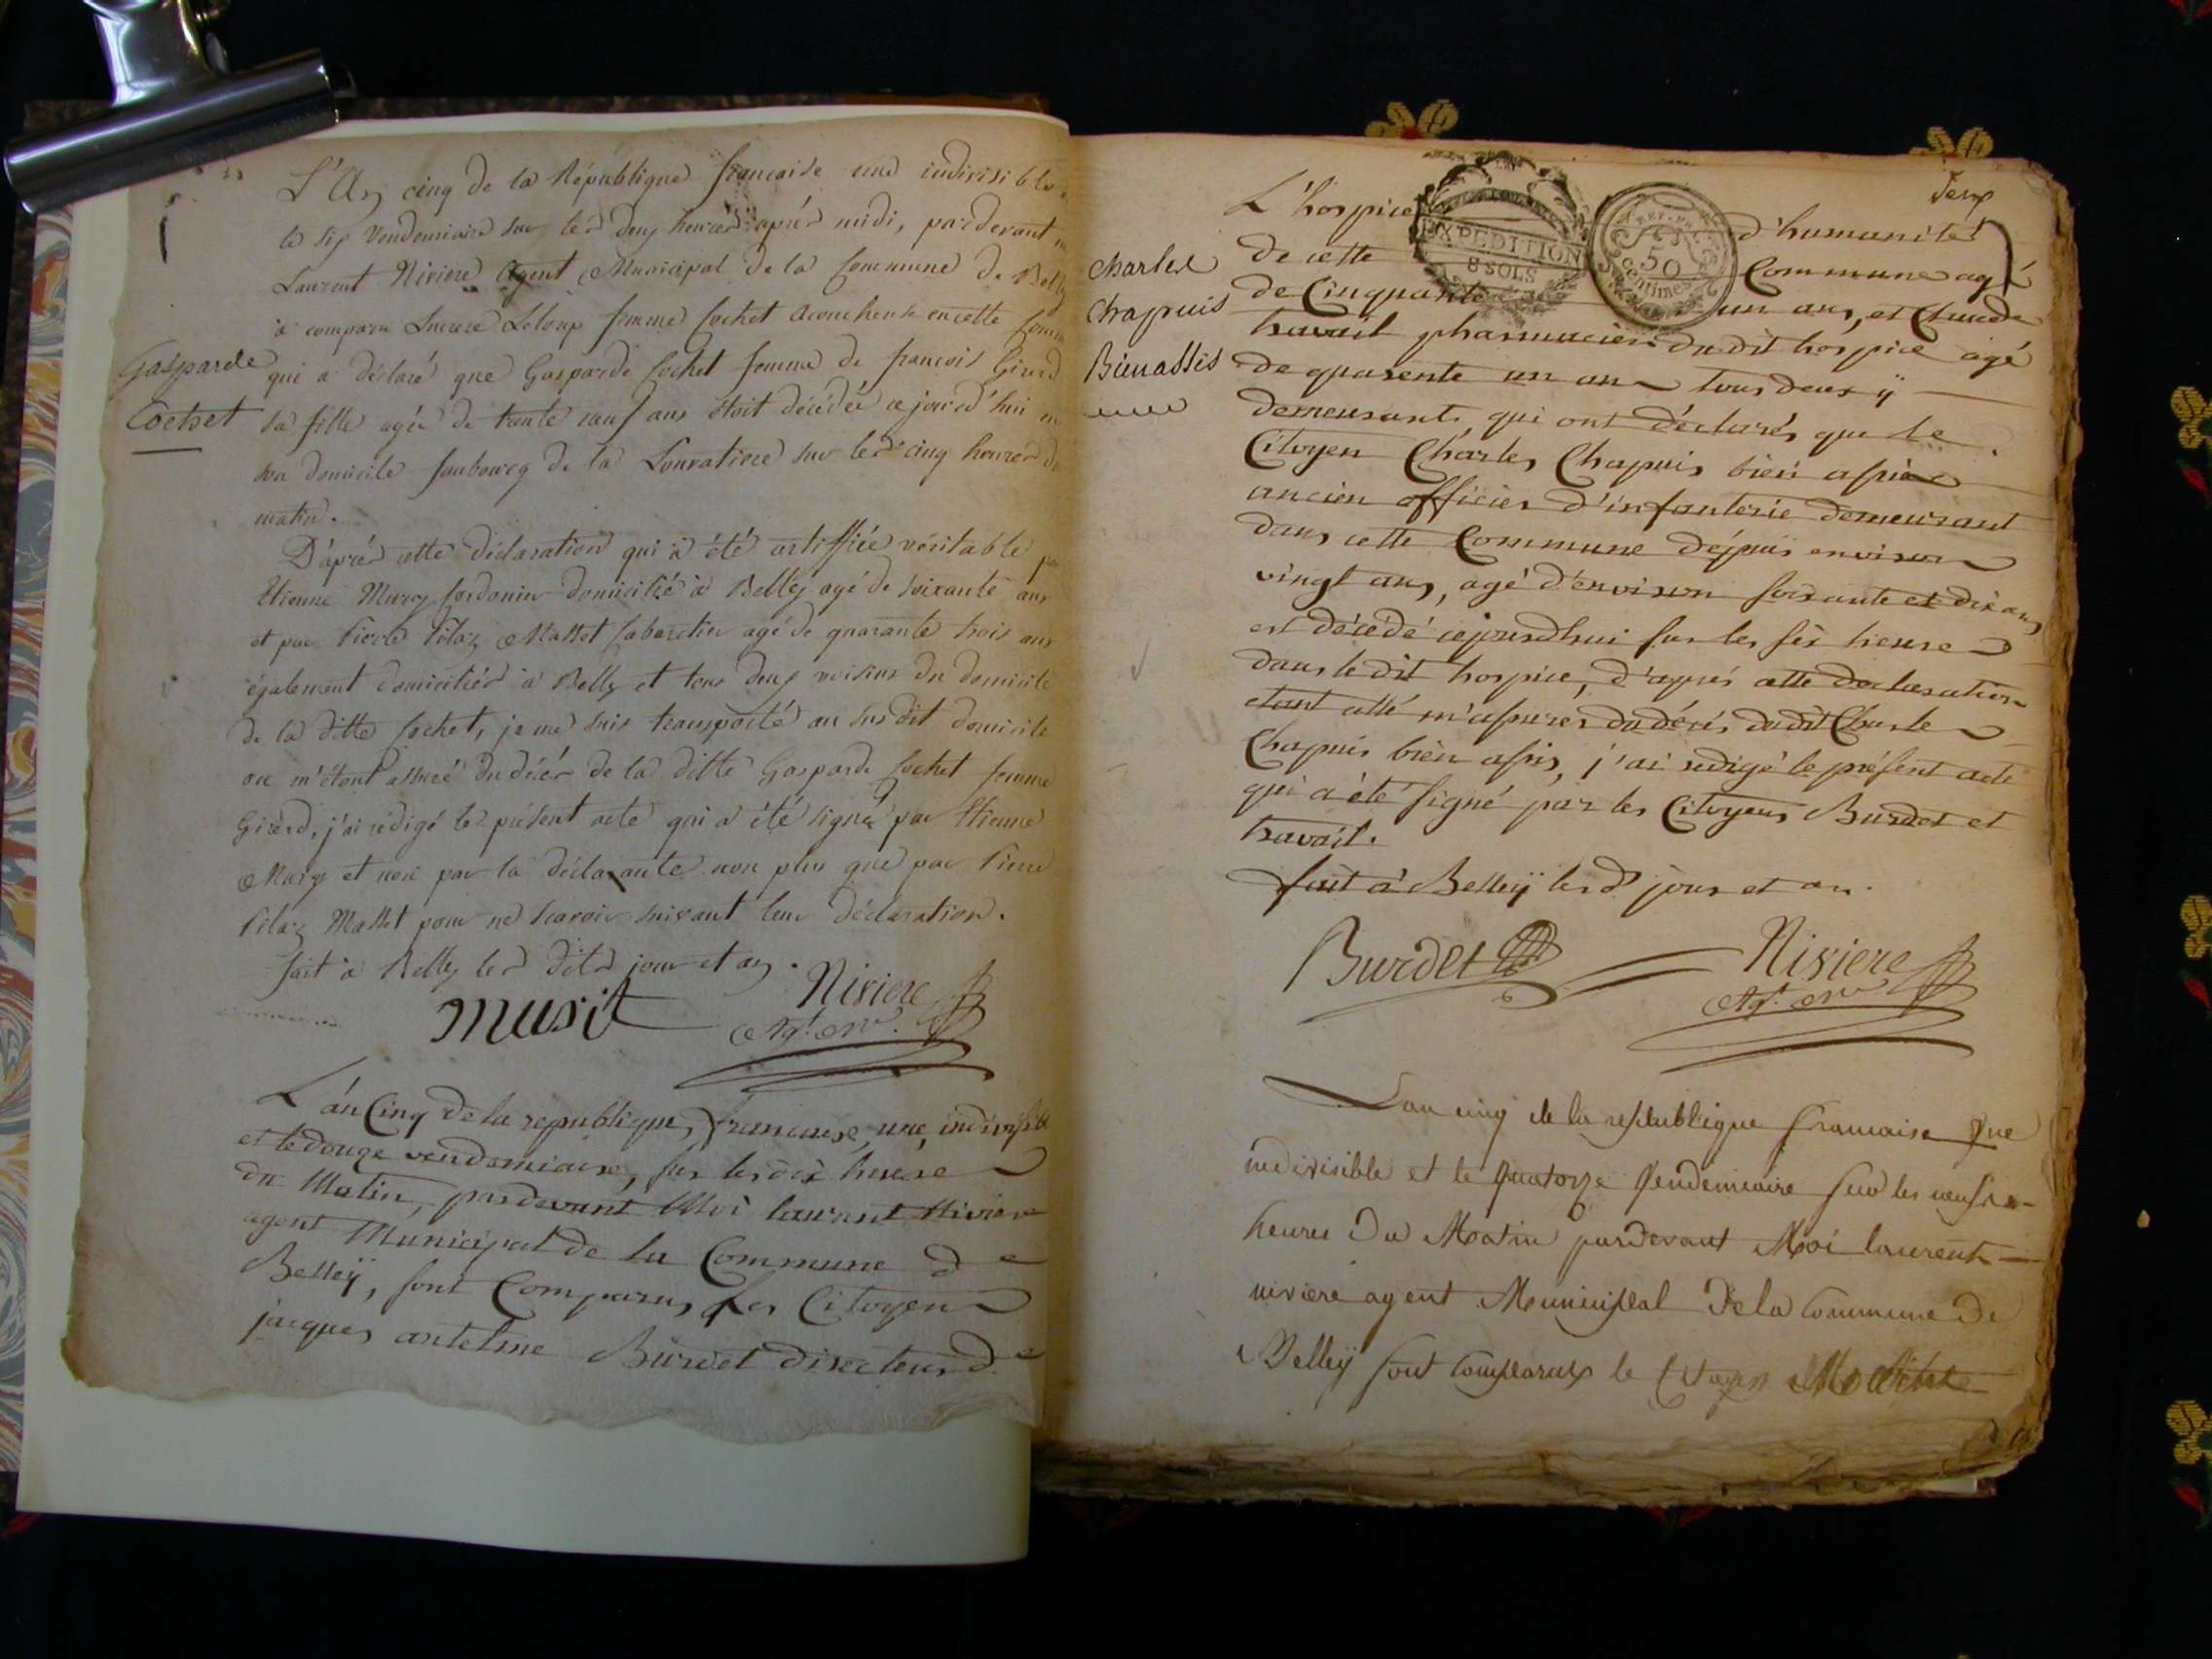 L'An cinq de la République française une indivisible
le six Vendemiaire sur les deux heures après midi, pardevant
Laurent Niviere Agent Municipal de la Commune de Belley
a comparu Lucrece Leloup femme Cochet acoucheuse en cette
Gasparde
Cochet
qui a déclaré que Gasparde Cochet femme de francois Girerd
sa fille agée de trente neuf ans étoit décédée ce jourd'hui en
son domicile faubourg de la Louvatiere sur les cinq heures du
matin.
D'après cette déclaration qui a été certiffiée véritable par
Etienne Cordonier domicilié à Belley agé de soixante ans
et par Pierre Pilaz Mallet Cabaretier agé de quarante trois ans
également domiciliés à Belley et tous deux voisins du domicile
de la ditte Cochet, je me suis transporté au susdit domicile
ou m'étant assuré du décès de la ditte Gasparde Cochet femme
Girerd, j'ai rédigé le présent acte qui a été signé par Etienne
et non par la déclarante non plus que par Pierre
Pilaz Mallet pour ne scavoir suivant leur déclaration.
fait à Belley les dits jour et an.
Niviere
Agt. Mal.
L'an Cinq de la republique, francaise, une, indivisible
et le douze vendemiaire, sur les dix heure
du Matin, pardevant Moi laurant Niviere
agent Municipal de la Commune de
Belleÿ, sont Comparus Les Citoyen
jacques antelme Burdet directeur de
deux
L'hospice d'humanité
EXPEDITION
8 SOLS
REP. FRA.
50
centimes
Charles
Chapuis
Bienassis
de cette Commune agé
de Cinquante un ans, et Claude
travail pharmacien du dit hospice agé
de quarente un an tous deux ÿ
demeurants, qui ont déclarés que le
Citoyen Charles Chapuis bien assis
ancien officier d'infanterie demeurant
dans cette Commune depuis environ
vingt ans, agé d'environ soixante et dix ans
est décédé cejourdhui sur les six heure
dans le dit hospice, d'aprés cette declaration
etant allé m'assurer du décés dudit Charle
Chapuis bien assis, j'ai redigé le présent acte
qui a été signé par les Citoyens Burdet et
travail.
fait a Belleÿ les d. jour et an.
Burdet
Niviere
Agt. Mal.
L'an cinq de la republique francaise une
indivisible et le quatorze Vendemiaire sur les neuf
heures Du Matin pardevant Moi laurent
niviere agent Municipal De la Commune De
Belleÿ sont comparus le Citoyen